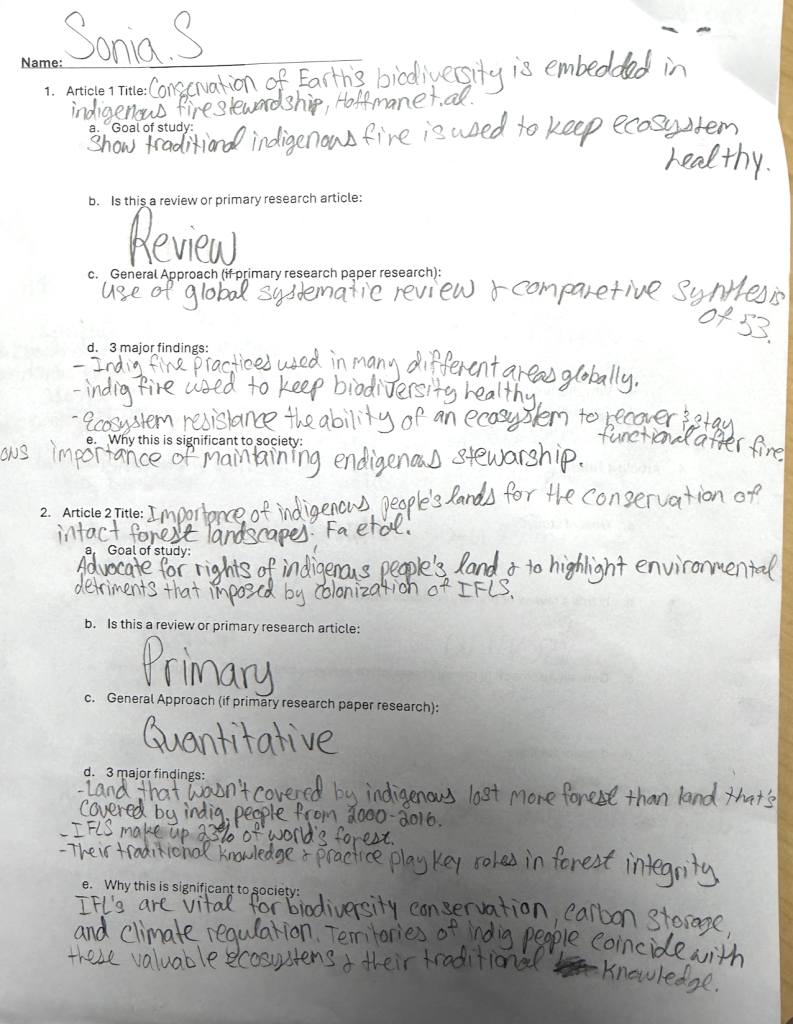 Name: Sonia.S
1. Article 1 Title: Conservation of Earth's biodiversity is embedded in
indigenous fire stewardship, Hoffman et.al.
a. Goal of study:
Show traditional indigenous fire is used to keep ecosystem
healthy.
b. Is this a review or primary research article:
Review
c. General Approach (if primary research paper research):
use of global systematic review & comparetive synthesis
of 53.
d. 3 major findings:
- Indig fire practices used in many different areas globally.
- indig fire used to keep biodiversity healthy
- Ecosystem resistance the ability of an ecosystem to recover & stay
functional after fire
e. Why this is significant to society:
ons importance of maintaining endigenous stewarship.
2. Article 2 Title: Importance of indigenous people's lands for the conservation of
intact forest landscapes. Fa et al.
a. Goal of study:
Advocate for rights of indigenous people's land & to highlight environmental
detriments that imposed by colonization of IFLS.
b. Is this a review or primary research article:
Primary
c. General Approach (if primary research paper research):
Quantitative
d. 3 major findings:
- Land that wasn't covered by indigenous lost more forest than land that's
covered by indig, people from 2000-2016.
- IFLS make up 23% of world's forest.
- Their traditional knowledge & practice play key roles in forest integrity
e. Why this is significant to society:
IFL's are vital for biodiversity conservation, carbon storage,
and climate regulation. Territories of indig people coincide with
these valuable ecosystems & their traditional knowledge.